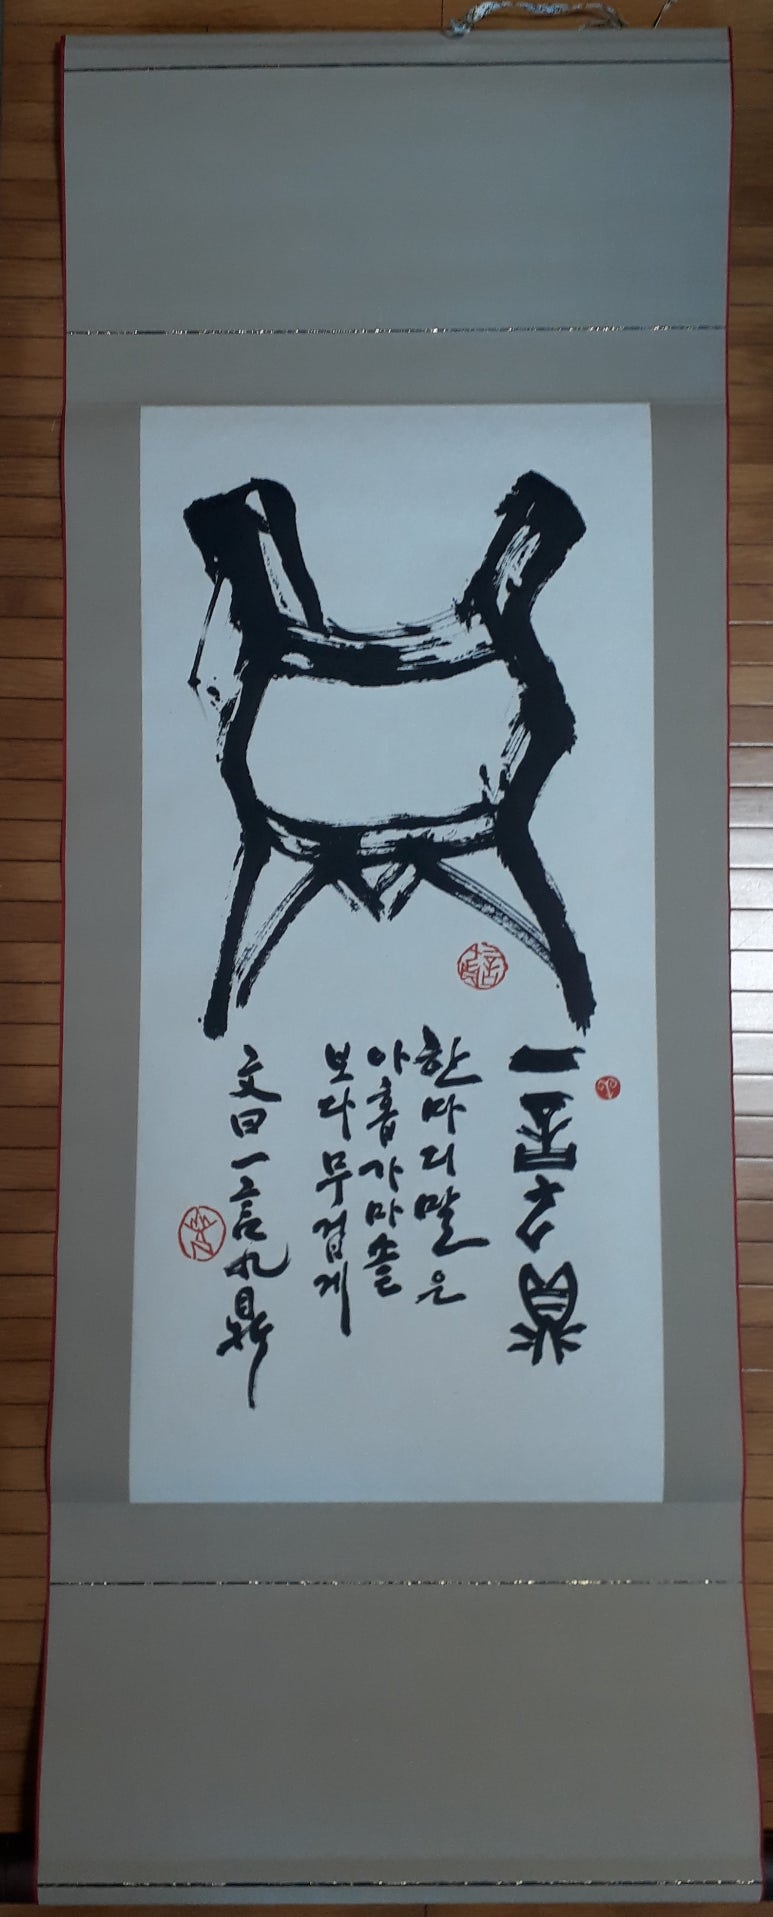 一言九鼎
한마디말은
아홉가마솥
보다무겁게
文曰一言九鼎